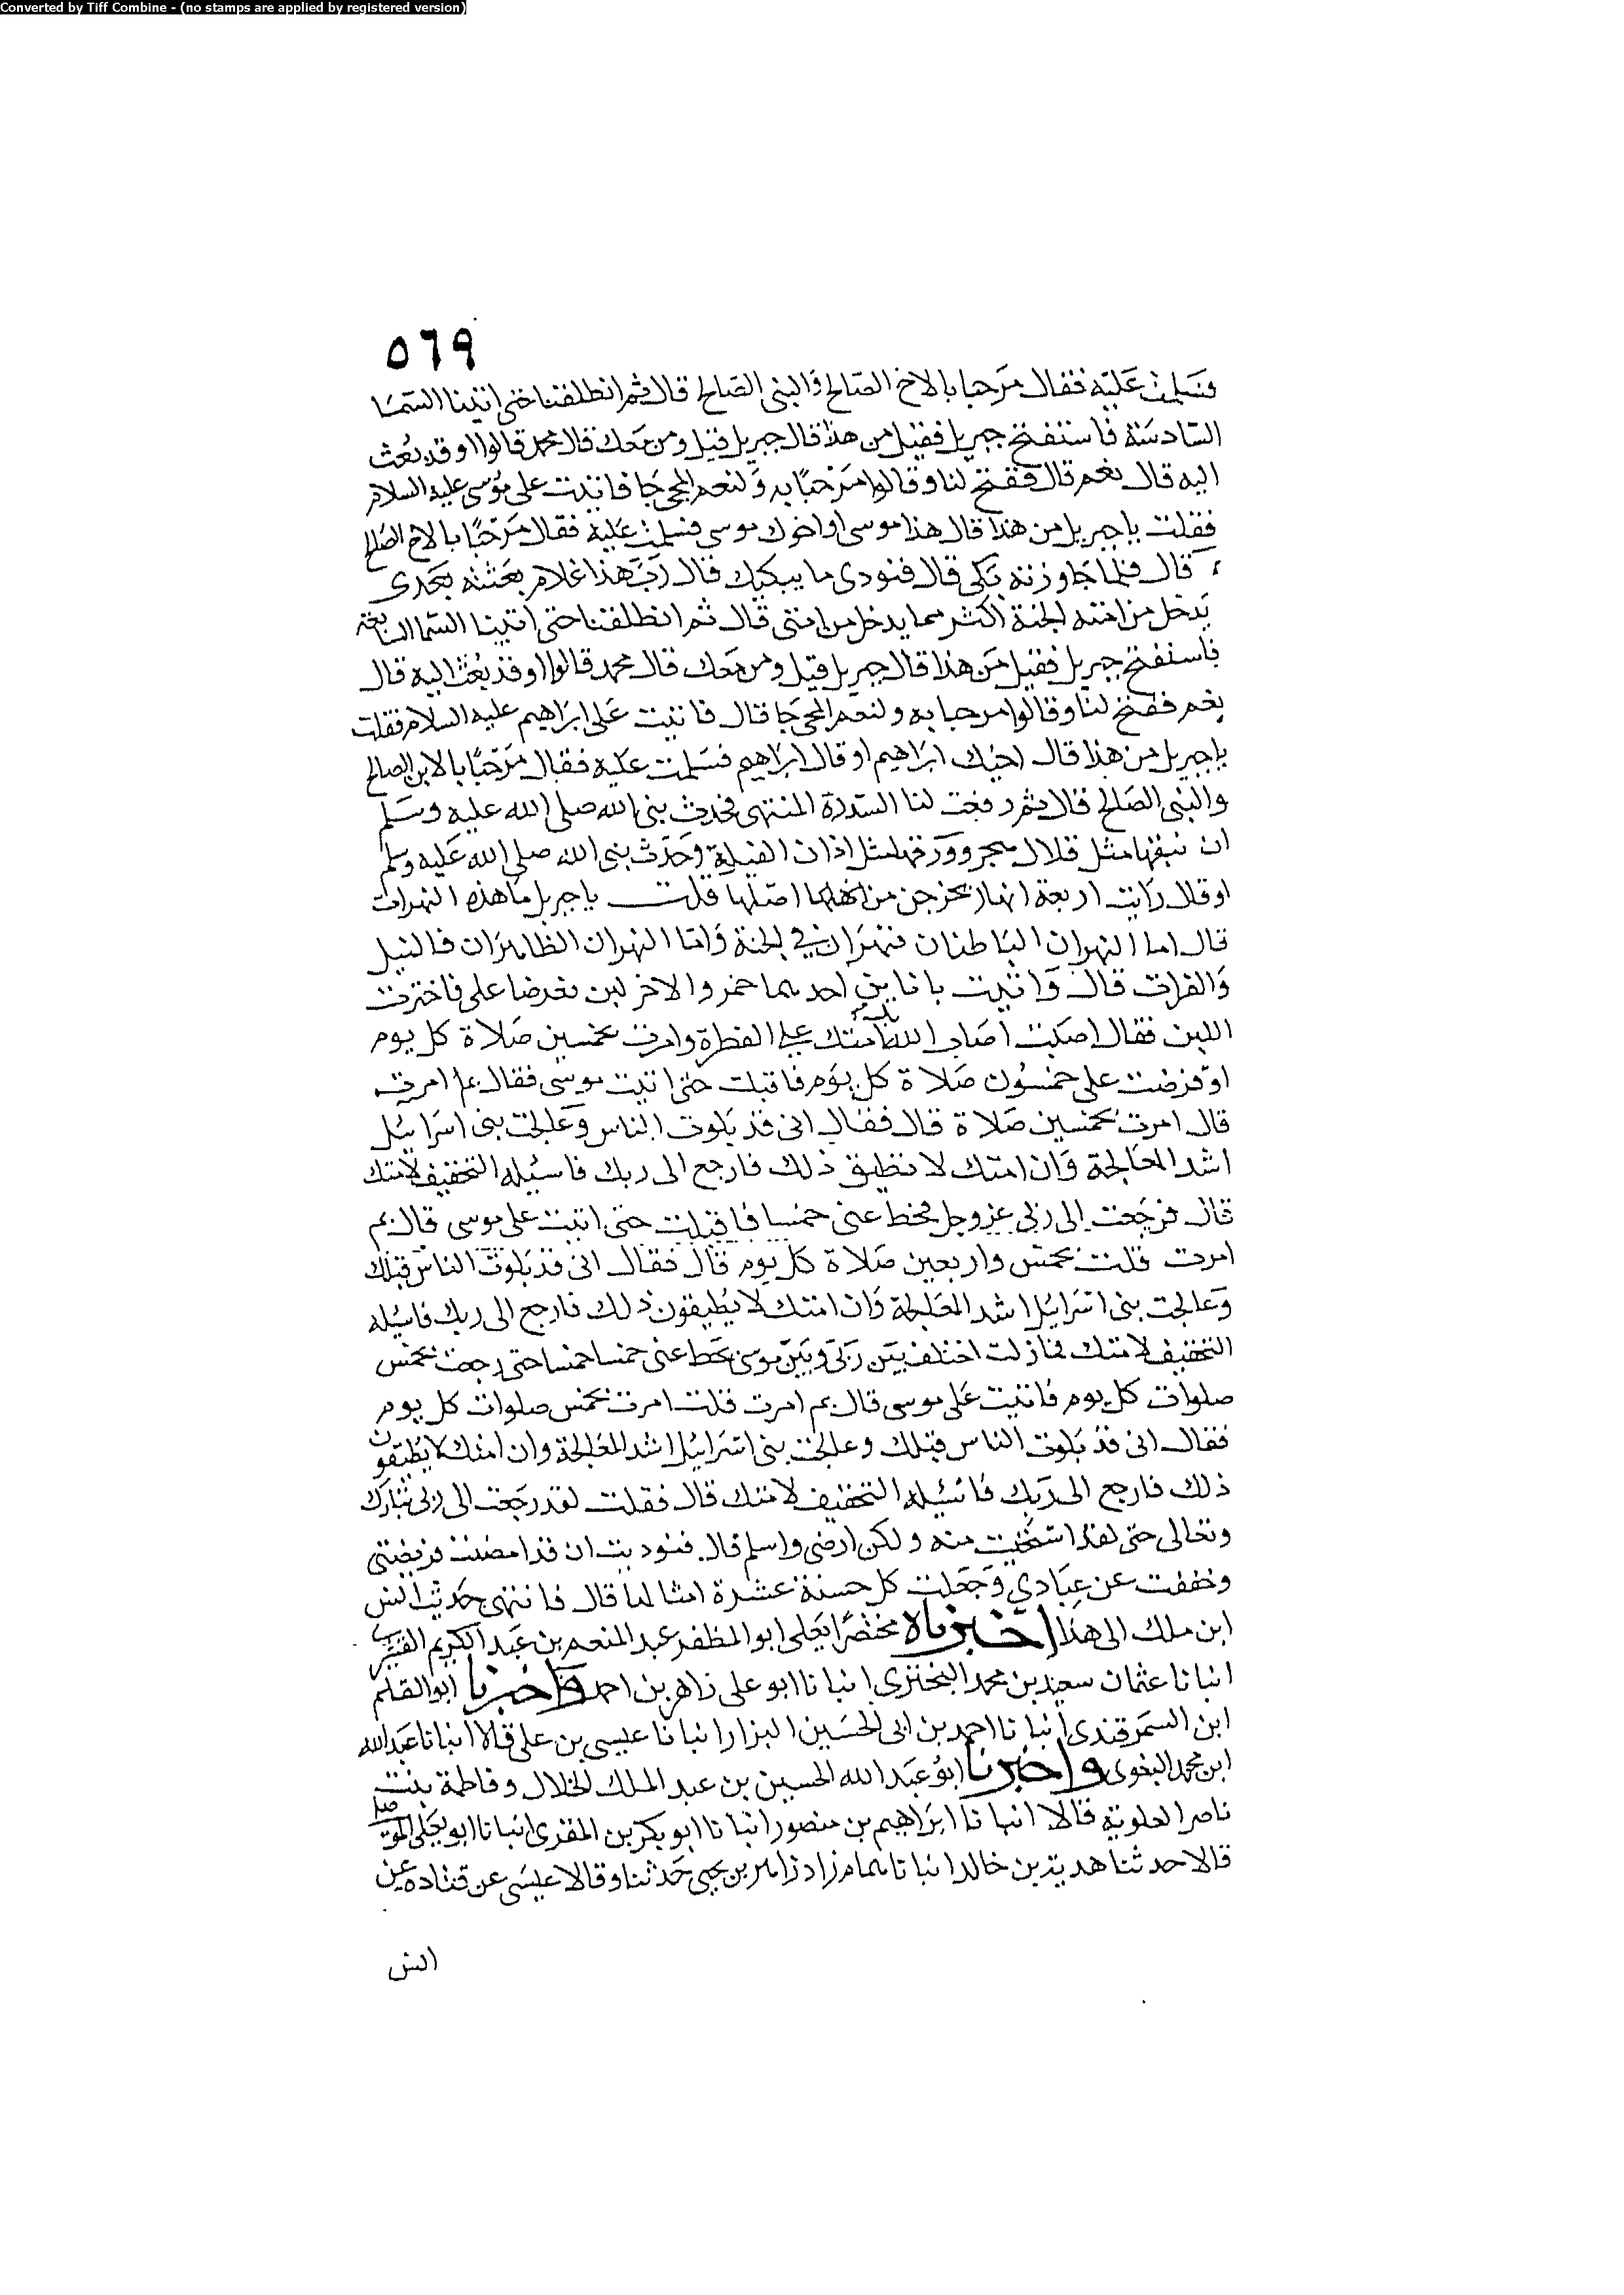 Converted by Tiff Combine - (no stamps are applied by registered version)
٥٦٩
فسلمت عليه فقال مرحبا بالاخ الصالح والنبي الصالح قال ثم انطلقنا حتى اتينا السما
السادسة فاستفتح جبريل فقيل من هذا قال جبريل قيل ومن معك قال محمد قالوا اوقد بعث
اليه قال نعم قال ففتح لنا وقالوا مرحبا به ولنعم المجى جا فاتيت على موسى عليه السلام
فقلت يا جبريل من هذا قال هذا موسى او اخوك موسى فسلمت عليه فقال مرحبا بالاخ الصالح
قال فلما جاوزته بكى قال فنودى ما يبكيك قال رب هذا غلام بعثته بعدى
يدخل من امته الجنة اكثر مما يدخل من امتى قال ثم انطلقنا حتى اتينا السما السابعة
فاستفتح جبريل فقيل من هذا قال جبريل قيل ومن معك قال محمد قالوا اوقد بعث اليه قال
نعم ففتح لنا وقالوا مرحبا به ولنعم المجى جا قال فاتيت على ابراهيم عليه السلام فقلت
يا جبريل من هذا قال اخيك ابراهيم او قال ابراهيم فسلمت عليه فقال مرحبا بالابن الصالح
والنبى الصالح قال ثم رفعت لنا السدرة المنتهى فحدث نبى الله صلى الله عليه وسلم
ان نبقها مثل قلال هجر وورقها مثل اذان الفيلة وحدث نبى الله صلى الله عليه وسلم
او قال رايت اربعة انهار يخرجن من اصلها قلت يا جبريل ما هذه النهرات
قال اما النهران الباطنان فنهران في الجنة واما النهران الظاهران فالنيل
والفرات قال واتيت باناين احدهما خمر والاخر لبن فعرضا على فاخترت
اللبن فقال اصبت اصاب الله بك امتك على الفطرة وامرت بخمسين صلاة كل يوم
او فرضت على خمسون صلاة كل يوم فاقبلت حتى اتيت موسى فقال بما امرت
قال امرت بخمسين صلاة قال فقال انى قد بلوت الناس وعالجت بنى اسرائيل
اشد المعالجة وان امتك لا تطيق ذلك فارجع الى ربك فاسئله التخفيف لامتك
قال فرجعت الى ربى عز وجل فحط عنى خمسا فاقبلت حتى اتيت على موسى قال بم
امرت قلت بخمس واربعين صلاة كل يوم قال فقال انى قد بلوت الناس قبلك
وعالجت بنى اسرائيل اشد المعالجة وان امتك لا يطيقون ذلك فارجع الى ربك فاسئله
التخفيف لامتك فما زلت اختلف بين ربى وبين موسى يحط عنى خمسا خمسا حتى رجعت بخمس
صلوات كل يوم فاتيت على موسى قال بم امرت قلت امرت بخمس صلوات كل يوم
فقال انى قد بلوت الناس قبلك وعالجت بنى اسرائيل اشد المعالجة وان امتك لا يطيقون
ذلك فارجع الى ربك فاسئله التخفيف لامتك قال فقلت لقد رجعت الى ربى تبارك
وتعالى حتى لقد استحيت منه ولكن ارضى واسلم قال فنوديت ان قد امضيت فريضتى
وخففت عن عبادي وجعلت كل حسنة عشرة امثالها قال فانتهى حديث انس
ابن ملك الى هذا اخبرناه مختصرا يعلى ابو المظفر عبد المنعم بن عبد الكريم القشيرى
انبانا عثمان سعيد بن محمد البختري انبانا ابو على زاهر بن احمد واخبرنا ابو القسم
ابن السمرقندى انبانا احمد بن ابى الحسين البزار انبانا عيسى بن على قالا انبانا عبد الله
ابن محمد البغوى واخبرنا ابو عبد الله الحسين بن عبد الملك الخلال وفاطمة بنت
ناصر العلوية قالا انبانا ابراهيم بن منصور انبانا ابو بكر بن المقرى انبانا ابو يعلى الموصلى
قالا حدثنا هدبة بن خالد انبانا همام زاد زاهر بن يحيى حدثنا وقالا عيسى عن قتاده عن
انس